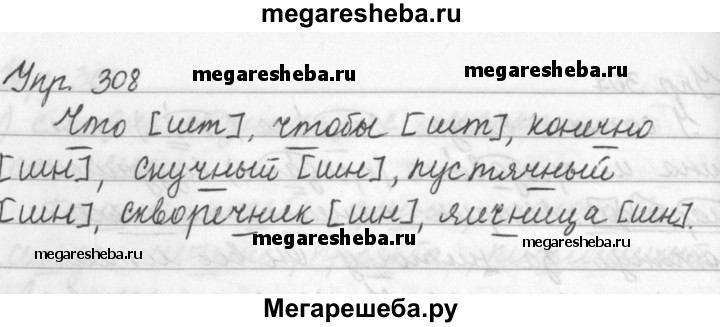 megaresheba.ru
Упр. 308
megaresheba.ru megaresheba.ru
Что [шт], чтобы [шт], конечно
[шн], скучный [шн], пустячный
[шн], скворечник [шн], яичница [шн].
megaresheba.ru megaresheba.ru megaresheba.ru
Мегарешеба.ру